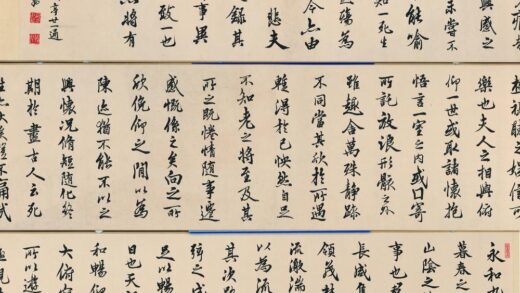 興感之
未嘗不
能喻
知一死生
殤為
今亦由
悲夫
錄其
事異
致一也
將有
樂也夫人之相與俯
仰一世或取諸懷抱
悟言一室之內或因寄
所託放浪形骸之外
雖趣舍萬殊靜躁
不同當其欣於所遇
輒得於己快然自足
不知老之將至及其
所之既惓情隨事遷
感慨係之矣向之所
欣俛仰之間以為
陳迹猶不能不以之
興懷況脩短隨化終
期於盡古人云死
生亦大矣豈不痛哉
永和九
暮春之
山陰之
事也群
長咸集
領茂林
流激湍
以為流
其次
足以
日也天
和暢仰
大俯察
所以遊